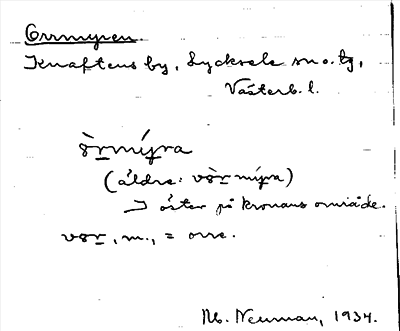 Orrmyren
Knaftens by, Lycksele sn o. tg,
Västerb. l.
òrmý̀ra
(äldre: vòrmý̀ra)
öster på kronans område.
vor, m., = orre.
Nb. Neuman, 1934.